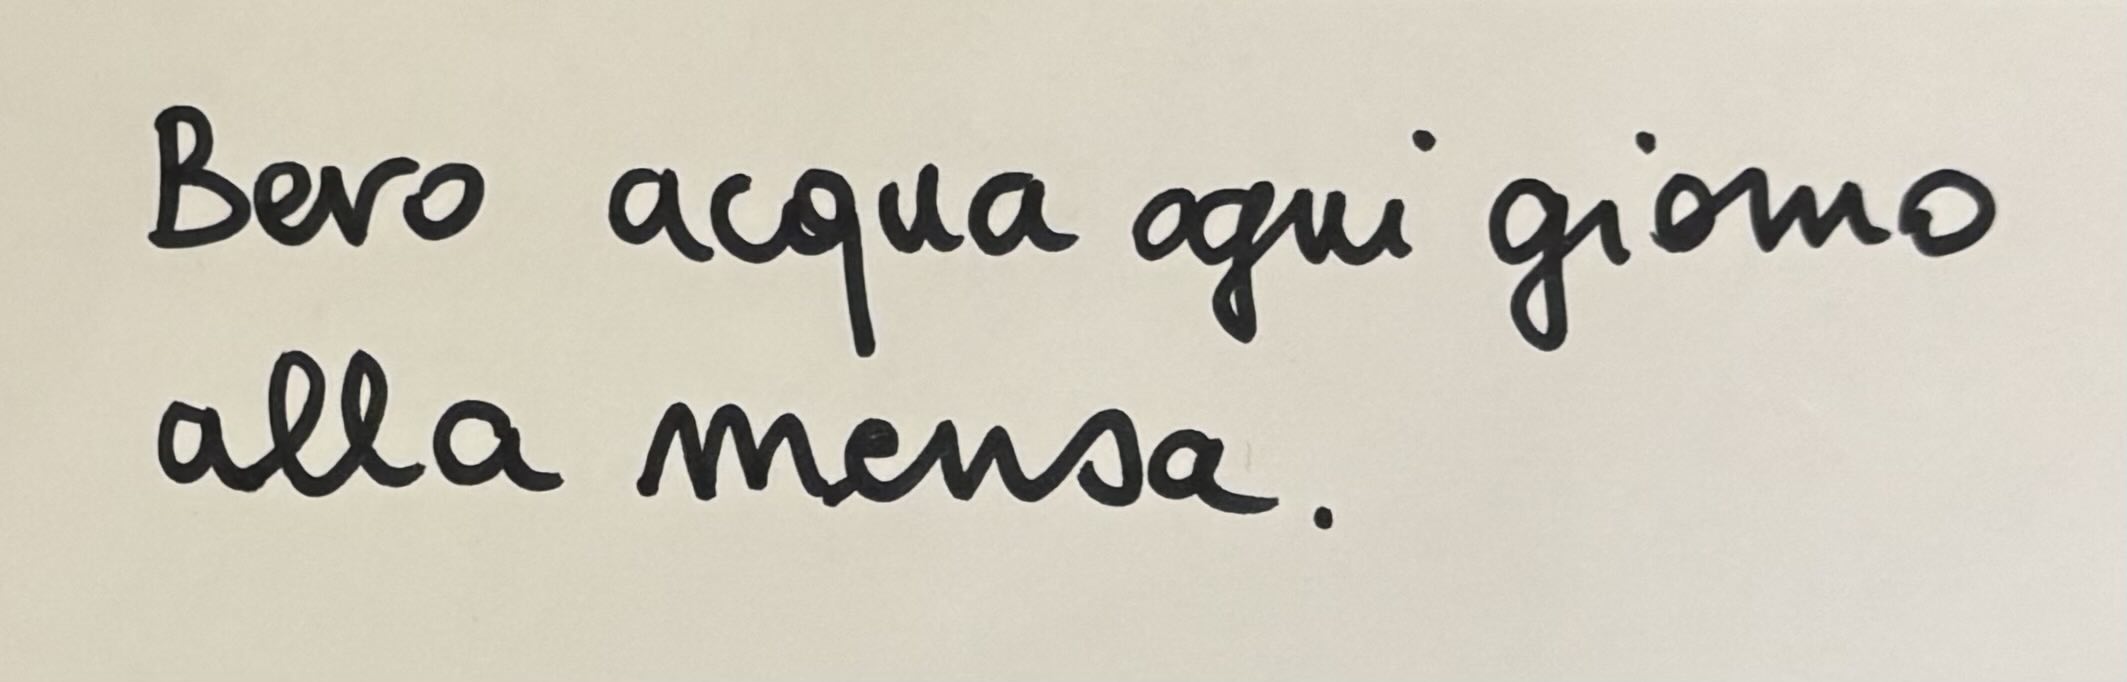 Bevo acqua ogni giorno
alla mensa.